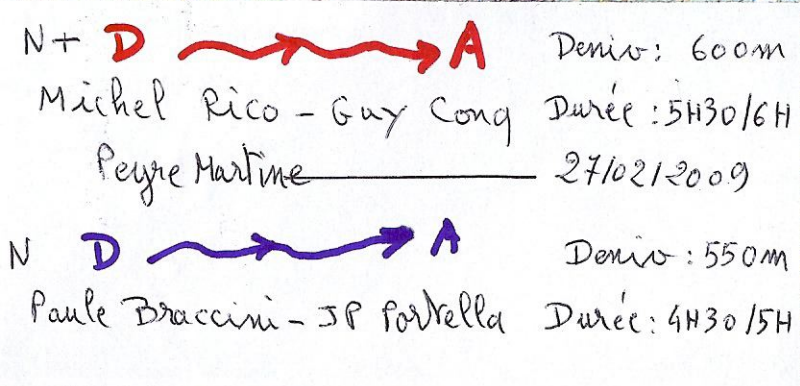 N+ D A Deniv: 600m
Michel Rico - Guy Conq Durée: 5H30/6H
Peyre Martine 27/02/2009
N D A Deniv: 550m
Paule Braccini - JP Portella Durée: 4H30/5H